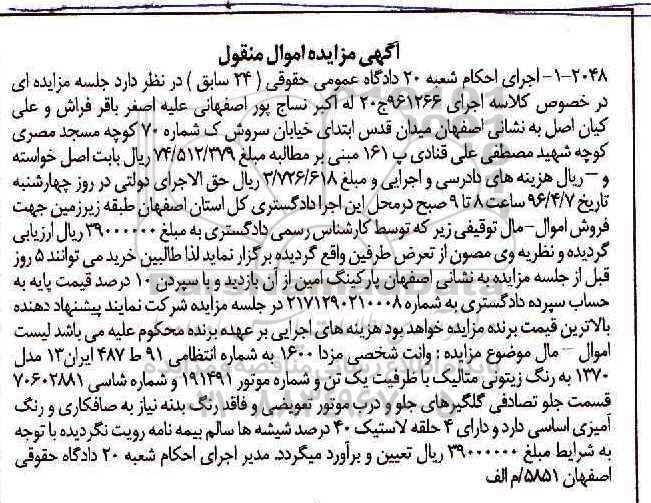 آگهی مزایده اموال منقول
۲۰۴۸-۱- اجرای احکام شعبه ۲۰ دادگاه عمومی حقوقی ( ۲۴ سابق ) در نظر دارد جلسه مزایده ای
در خصوص کلاسه اجرای ۹۶۱۲۶۶ج۲۰ له اکبر نساج پور اصفهانی علیه اصغر باقر فراش و علی
کیان اصل به نشانی اصفهان میدان قدس ابتدای خیابان سروش ک شماره ۷۰ کوچه مسجد مصری
کوچه شهید مصطفی علی قنادی پ ۱۶۱ مبنی بر مطالبه مبلغ ۷۴/۵۱۲/۳۷۹ ریال بابت اصل خواسته
و – ریال هزینه های دادرسی و اجرایی و مبلغ ۳/۷۲۶/۶۱۸ ریال حق الاجرای دولتی در روز چهارشنبه
تاریخ ۹۶/۴/۷ ساعت ۸ تا ۹ صبح درمحل این اجرا دادگستری کل استان اصفهان طبقه زیرزمین جهت
فروش اموال-مال توقیفی زیر که توسط کارشناس رسمی دادگستری به مبلغ ۳۹۰۰۰۰۰۰ ریال ارزیابی
گردیده و نظریه وی مصون از تعرض طرفین واقع گردیده برگزار نماید لذا طالبین خرید می توانند ۵ روز
قبل از جلسه مزایده به نشانی اصفهان پارکینگ امین از آن بازدید و با سپردن ۱۰ درصد قیمت پایه به
حساب سپرده دادگستری به شماره ۲۱۷۱۲۹۰۲۱۰۰۰۸ در جلسه مزایده شرکت نمایند پیشنهاد دهنده
بالاترین قیمت برنده مزایده خواهد بود هزینه های اجرایی بر عهده برنده محکوم علیه می باشد لیست
اموال – مال موضوع مزایده : وانت شخصی مزدا ۱۶۰۰ به شماره انتظامی ۹۱ ط ۴۸۷ ایران۱۳ مدل
۱۳۷۰ به رنگ زیتونی متالیک با ظرفیت یک تن و شماره موتور ۱۹۱۴۹۱ و شماره شاسی ۷۰۶۰۲۸۸۱
قسمت جلو تصادفی گلگیرهای جلو و درب موتور تعویضی و فاقد رنگ بدنه نیاز به صافکاری و رنگ
آمیزی اساسی دارد و دارای ۴ حلقه لاستیک ۴۰ درصد شیشه ها سالم بیمه نامه رویت نگردیده با توجه
به شرایط مبلغ ۳۹۰۰۰۰۰۰ ریال تعیین و برآورد میگردد. مدیر اجرای احکام شعبه ۲۰ دادگاه حقوقی
اصفهان ۵۸۵۱/م الف